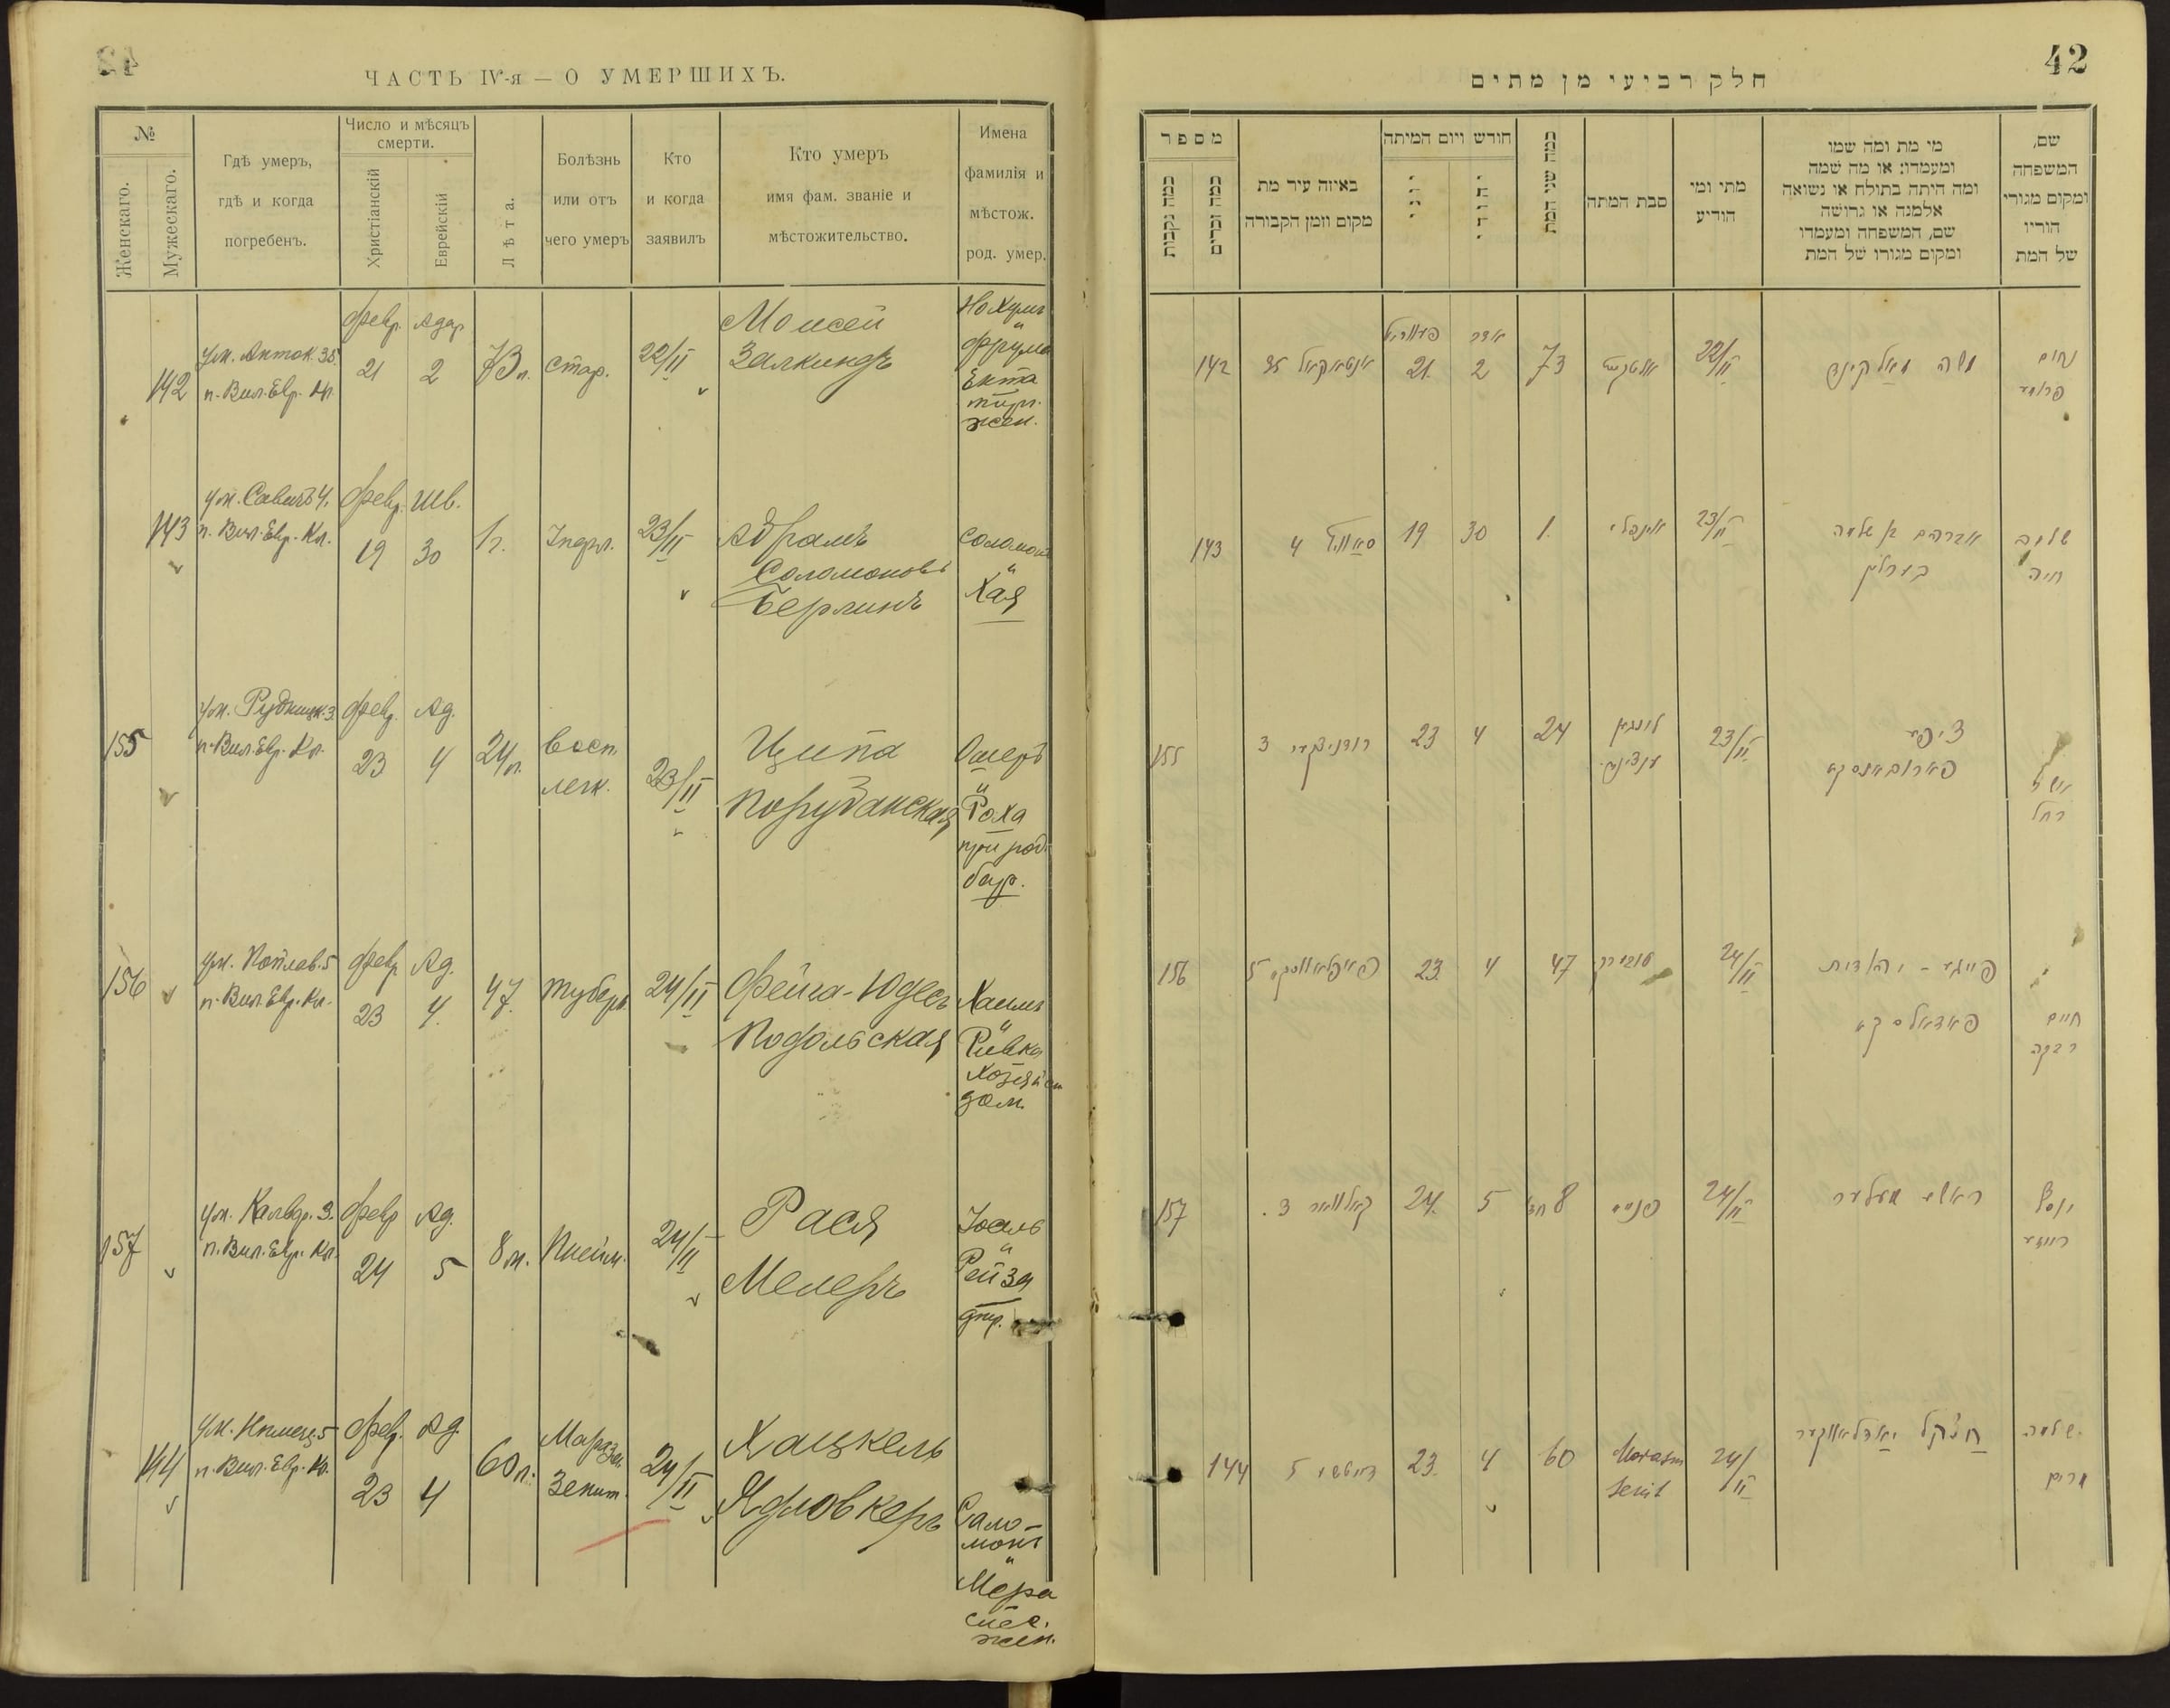 ЧАСТЬ IV-я — О УМЕРШИХЪ.
№
Женскаго.
Мужескаго.
Гдѣ умеръ,
гдѣ и когда
погребенъ.
Число и мѣсяцъ
смерти.
Христіанскій
Еврейскій
Лѣта.
Болѣзнь
или отъ
чего умеръ
Кто
и когда
заявилъ
Кто умеръ
имя фам. званіе и
мѣстожительство.
Имена
фамилія и
мѣстож.
род. умер.
142
ум. Анток. 35
п. Вил. Евр. Кл.
февр. Адар
21 2
73 л.
стар.
22/II
Моисей
Залкиндъ
Нохумъ
"
Фрума
жен.
143
ум. Савичъ 4.
п. Вил. Евр. Кл.
февр. шв.
19 30
1 г.
Инфл.
23/II
Абрамъ
Соломоновъ
Берлинъ
Соломонъ
"
Хая
155
ум. Рудницк. 3
п. Вил. Евр. Кл.
февр. Ад.
23 4
24 л.
восп.
легк.
23/II
Ципа
Порубанская
Ошеръ
"
Роха
при род.
156
ум. Поплав. 5
п. Вил. Евр. Кл.
февр. Ад.
23 4
47
тубер.
24/II
Фейга-Юдесъ
Подольская
Хаимъ
"
Ривка
дом.
157
ум. Калвар. 3.
п. Вил. Евр. Кл.
февр. Ад.
24 5
8 м.
Пнейм.
24/II
Рася
Мелеръ
Іосель
"
Рейза
144
ум. Нѣмец. 5
п. Вил. Евр. Кл.
февр. Ад.
23 4
60 л.
Маразм.
Зенит.
24/II
Хацкель
Ядловкеръ
Соло-
монъ
"
Мера
жен.
42
חלק רביעי מן מתים
מספר
כמה נקבות
כמה זכרים
באיזה עיר מת
מקום וזמן הקבורה
חודש ויום המיתה
יוני
יהודי
כמה שני המת
סבת המתה
מתי ומי
הודיע
מי מת ומה שמו
ומעמדו: או מה שמה
ומה היתה בתולה או נשואה
אלמנה או גרושה
שם, המשפחה ומעמדו
ומקום מגורו של המת
שם,
המשפחה
ומקום מגורי
הוריו
של המת
142
אנטאקאל 35
אדר
21. 2
73
22/II
משה זאלקינד
נחום
פרומע
143
סאוויץ 4
19 30
1.
23/II
אברהם בן שלמה
בערלין
שלמה
חיה
155
רודניצקער 3
23 4
24
לונגען
ענצינד.
23/II
ציפע
פארובאנסקא
אשר
רחל
156
פאפלאווסקא 5
23 4
47
24/II
פייגע - יהודית
פאדאלסקא
חיים
רבקה
157
קאלוואר 3.
24. 5
8
24/II
ראשע מעלער
יוסף
רייזע
144
דייטשע 5
23. 4
60
Marasm
senil
24/II
חצקל יאדלאווקער
שלמה
מרים